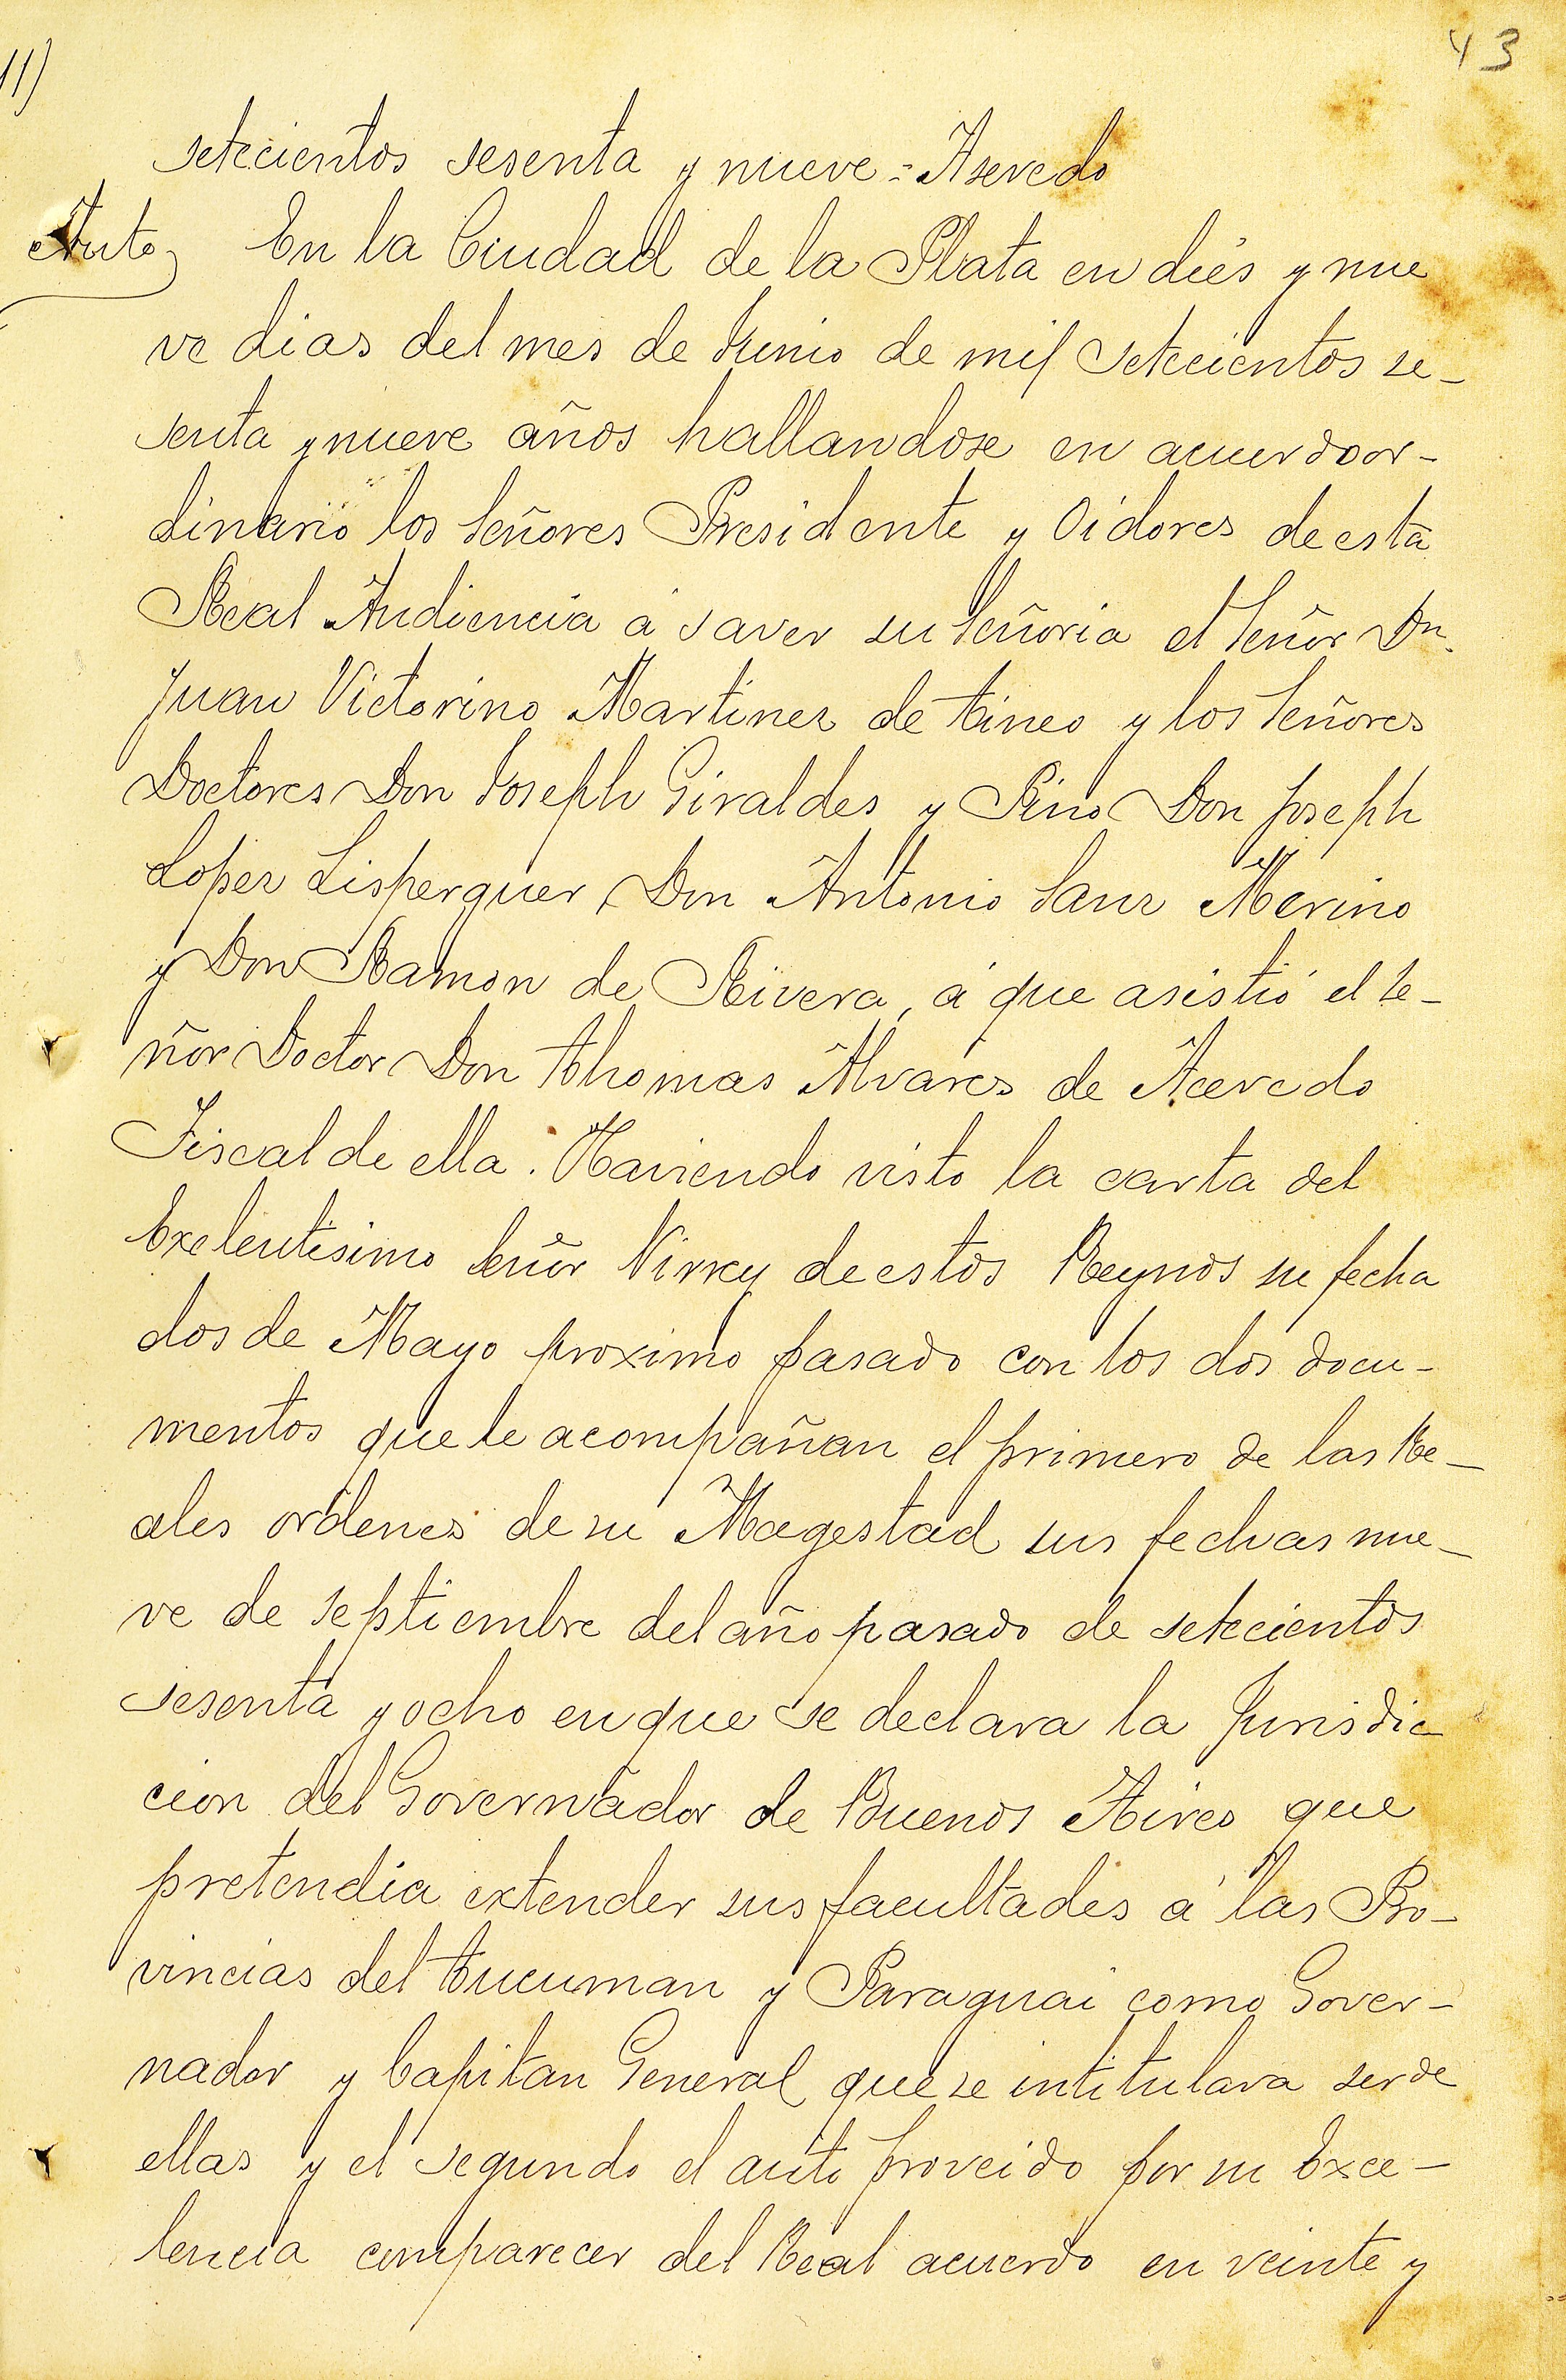 11)
43
setecientos sesenta y nueve = Asevedo
Auto
En la Ciudad de la Plata en diés y nue
ve dias del mes de Junio de mil setecientos se-
senta y nueve años hallandose en acuerdo or-
dinario los Señores Presidente y Oidores de esta
Real Audiencia á saver su Señoria el Señor Dn.
Juan Victorino Martinez de Tineo y los Señores
Doctores Don Joseph Giraldes y Pino Don Joseph
Lopez Lisperguer Don Antonio Sanz Merino
y Don Ramon de Rivera, á que asistió el Se-
ñor Doctor Don Thomas Alvares de Acevedo
Fiscal de ella. Haviendo visto la carta del
Exelentisimo Señor Virrey de estos Reynos su fecha
dos de Mayo proximo pasado con los dos docu-
mentos que le acompañan el primero de las Re-
ales ordenes de su Magestad sus fechas nue-
ve de Septiembre del año pasado de setecientos
sesenta y ocho en que se declara la Jurisdic
cion del Governador de Buenos Aires que
pretendia extender sus facultades á las Pro-
vincias del Tucuman y Paraguai como Gover-
nador y Capitan General que se intitulara ser de
ellas y el segundo el auto proveido por su Exce-
lencia comparecer del Real acuerdo en veinte y